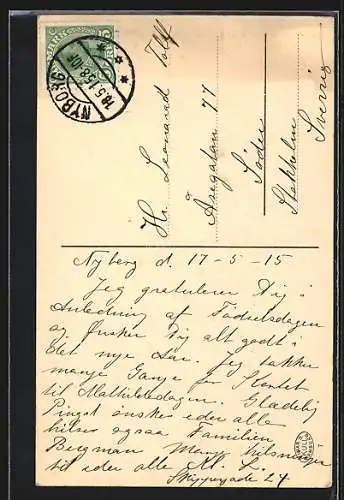 NYBORG
18.5.15.8-10F
Hr. Leonard Tolf
Åsögatan 77
Söder
Stockholm
Sverrig
Nyborg d. 17-5-15
Jeg gratulerer Dig i
Anledning af Fødselsdagen
og Ønsker Dig alt godt i
det nye Aar. Jeg takker
mange Gange for Kortet
til Mathildedagen. Glædelig
Pingst ønskes eder alle
hilse ogsaa Familien
Bergman Mange hilsninger
til eder alle
24